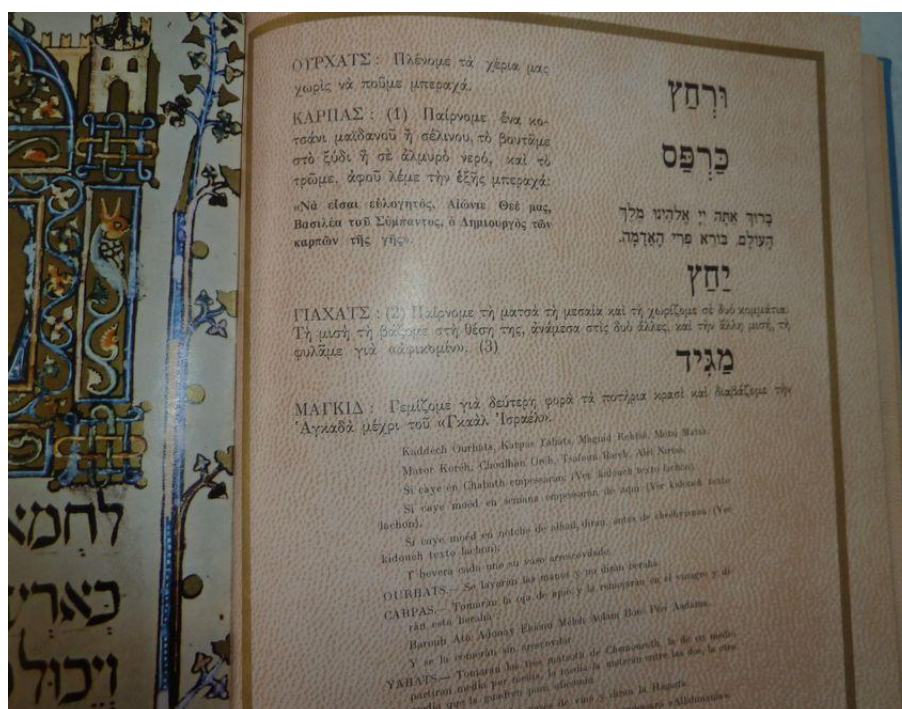 לחמא
כארי
ויכול
ΟΥΡΧΑΤΣ : Πλένομε τὰ χέρια μας
χωρὶς νὰ ποῦμε μπεραχά.
וּרְחַץ
ΚΑΡΠΑΣ : (1) Παίρνομε ἕνα κο-
τσάνι μαϊδανοῦ ἤ σέλινου, τὸ βουτᾶμε
στὸ ξύδι ἤ σὲ ἁλμυρὸ νερό, καὶ τὸ
τρῶμε, ἀφοῦ λέμε τὴν ἑξῆς μπεραχά:
כַּרְפַּס
«Νὰ εἶσαι εὐλογητός, Αἰώνιε Θεέ μας,
Βασιλέα τοῦ Σύμπαντος, ὁ Δημιουργὸς τῶν
καρπῶν τῆς γῆς».
בָּרוּךְ אַתָּה יְיָ אֱלֹהֵינוּ מֶלֶךְ
הָעוֹלָם, בּוֹרֵא פְּרִי הָאֲדָמָה.
יַחַץ
ΓΙΑΧΑΤΣ : (2) Παίρνομε τὴ ματσὰ τὴ μεσαία καὶ τὴ χωρίζομε σὲ δυὸ κομμάτια.
Τὴ μισὴ τὴ βάζομε στὴ θέση της, ἀνάμεσα στὶς δυὸ ἄλλες, καὶ τὴν ἄλλη μισή, τὴ
φυλᾶμε γιὰ «ἀφικομὶν». (3)
מַגִּיד
ΜΑΓΚΙΔ : Γεμίζομε γιὰ δεύτερη φορὰ τὰ ποτήρια κρασὶ καὶ διαβάζομε τὴν
Ἀγκαδὰ μέχρι τοῦ «Γκαὰλ Ἰσραέλ».
Kaddéch Ourhats, Karpas Yahats, Maguid Rohtsá, Motsi Matsá.
Maror Koréh, Choulhan Oréh, Tsafoun Baréh, Alél Nirtsa.
Si caye en Chabath empessaran. (Ver kidouch texto lachon).
Si caye moéd en semana empessaran de aqui (Ver kidouch texto
lachon).
Si caye moéd en notche de alhad, diran, antes de chéhéyanou (Ver
kidouch texto lachon).
Y bevera cada uno su vaso arrescovdado.
OURHATS.— Se lavaran las manos y no diran beraha.
CARPAS.— Tomaran la oja de apio, y la remojaran en el vinagre y di-
ran esta beraha.
Barouh Atá Adonay Eloénou Méleh Aolam Boré Péri Aadama.
Y se la comeran sin arrescovdar.
YAHATS.— Tomaran las tres matsoth de Chemouroth, la de en medio
partiran media por media, la media la meteran entre las dos, la otra
media que la guarden para aficomin.
de vino y diran la Hagada.